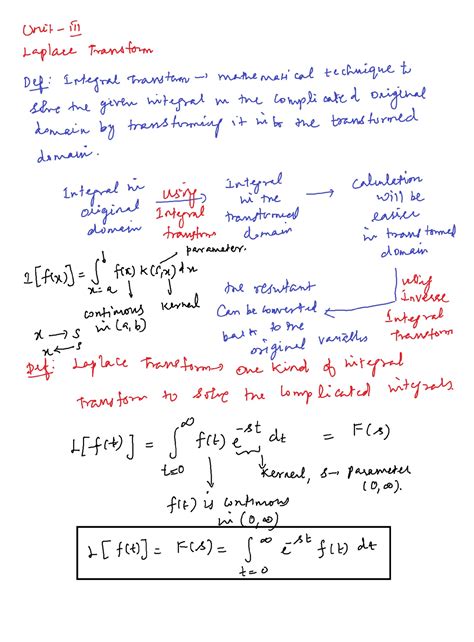 Unit - III
Laplace Transform
Def: Integral Transform → mathematical technique to
solve the given integral in the complicated original
domain by transforming it into the transformed
domain.
Integral in original domain
using Integral transform
Integral in the transformed domain
→ Calculation will be easier in transformed domain
using Inverse Integral Transform
the resultant
Can be converted
back to the
original variables
parameter.
I[f(x)] = ∫_{x=a}^{b} f(x) k(s,x) dx
continuous in (a, b)
kernel
x → s
x ← s
Def: Laplace Transform → one kind of integral
transform to solve the complicated integrals
L[f(t)] = ∫_{t=0}^{∞} f(t) e^{-st} dt = F(s)
kernel, s → parameter
(0, ∞).
f(t) is continuous
in (0, ∞)
L[f(t)] = F(s) = ∫_{t=0}^{∞} e^{-st} f(t) dt